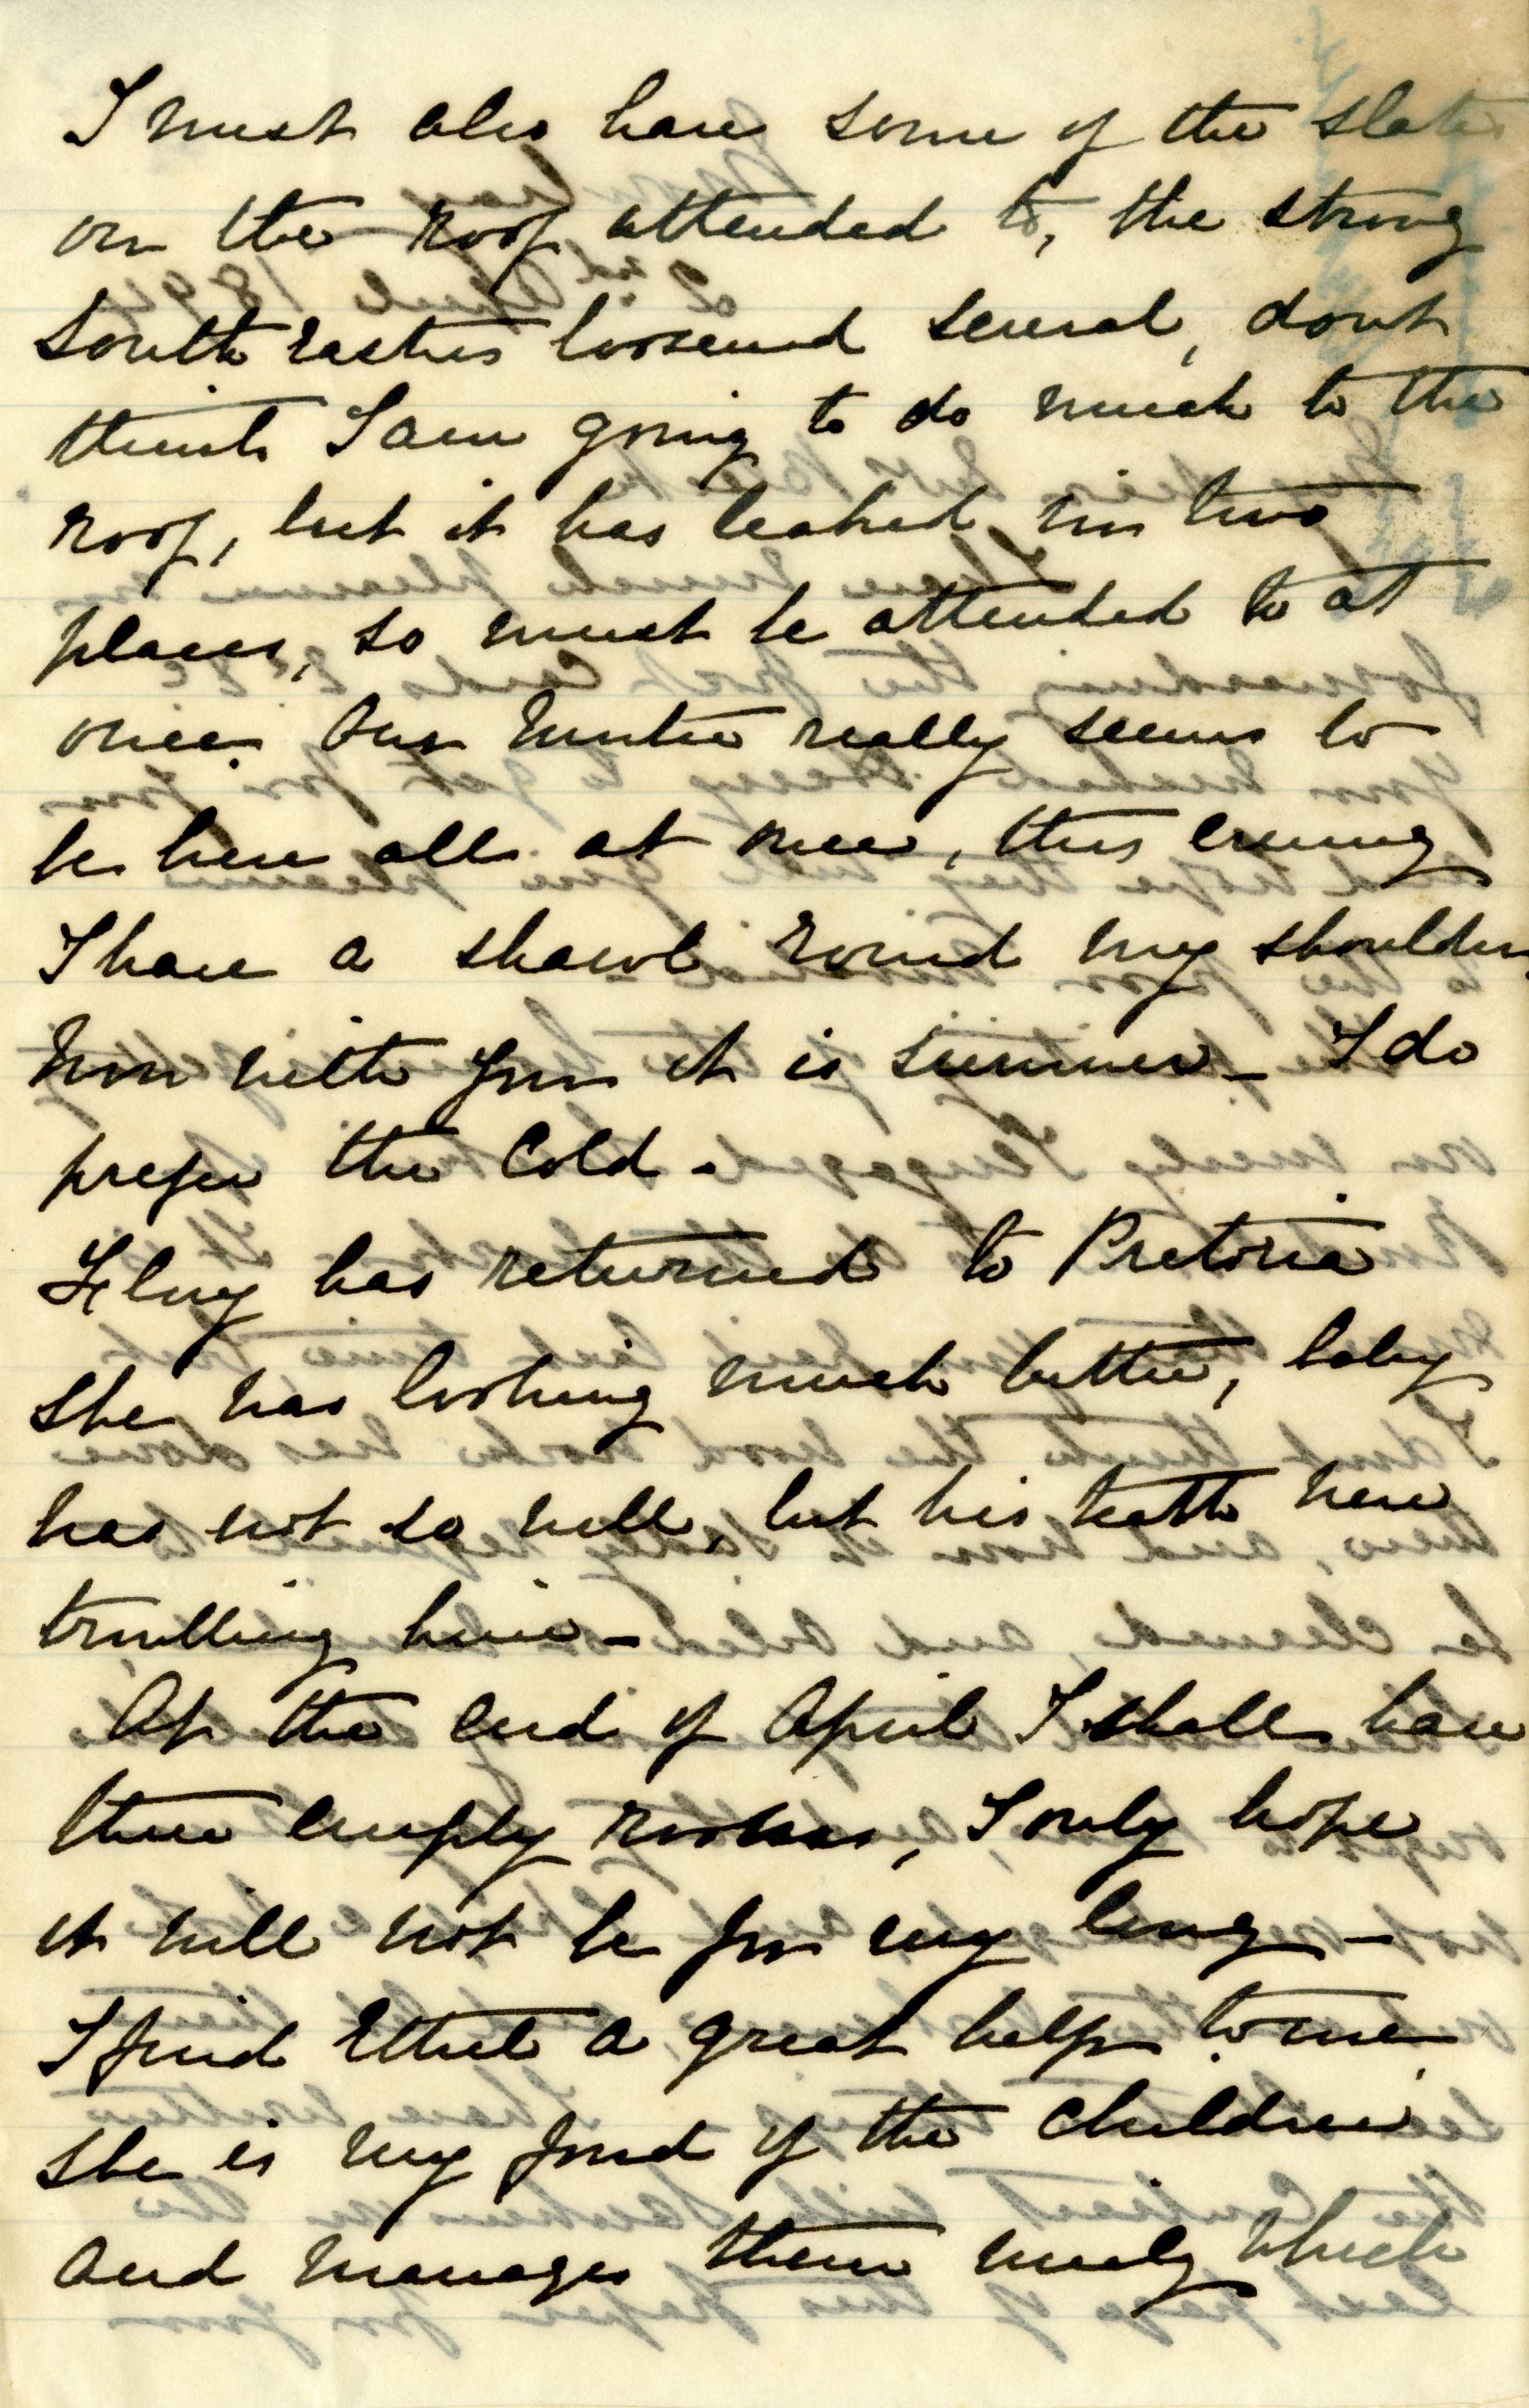 I must also have some of the slates
on the roof attended to, the strong
South Easters loosened several, dont
think I am going to do much to the
roof, but it has leaked in two
places, so must be attended to at
once. Our Winter really seems to
be here all at once, this evening
I have a shawl round my shoulders
Now with you it is summer – I do
prefer the Cold –
has returned to Pretoria
she was looking much better, baby
was not so well, but his teeth were
troubling him –
At the end of April I shall have
three empty rooms, I only hope
it will not be for very long –
I find Ethel a great help to me
she is very fond of the children
and manages them nicely which